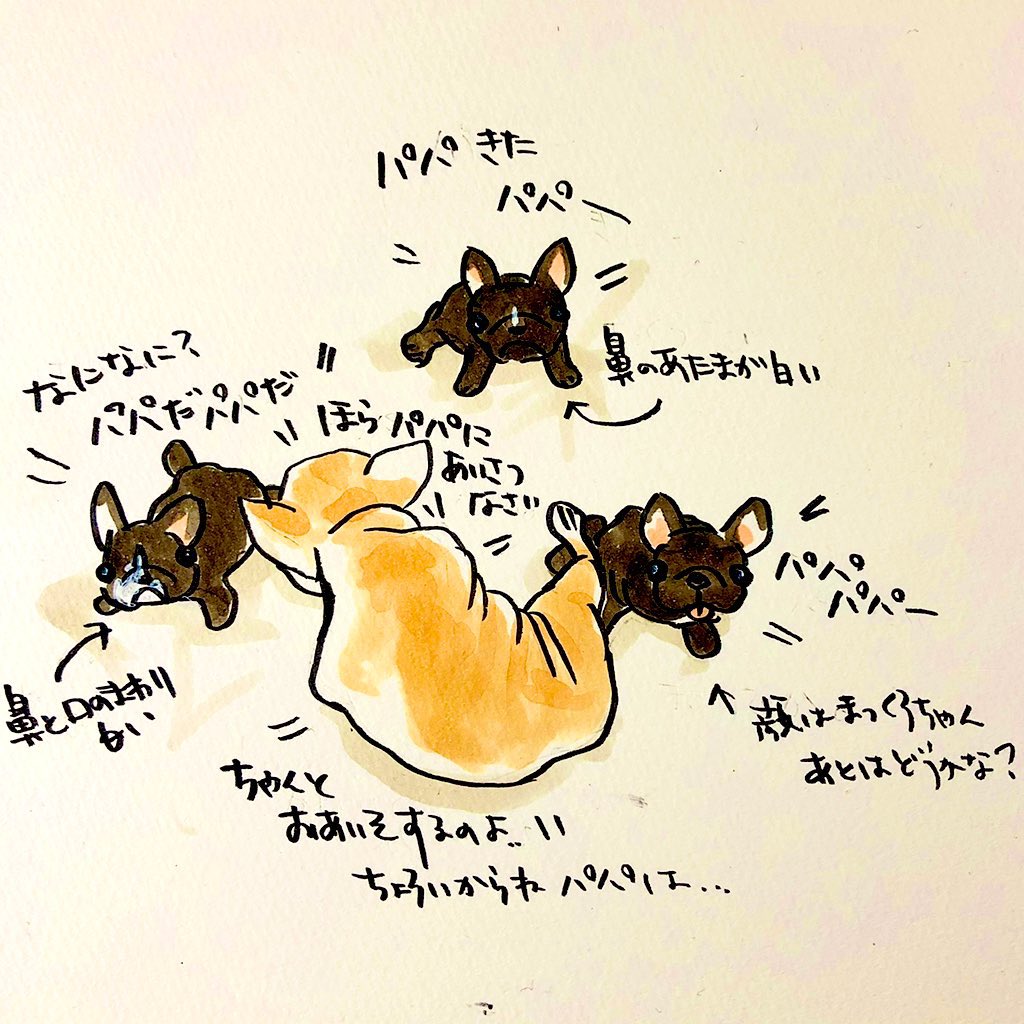 パパ きた
パパー
鼻のあたまが白い
なになに？
パパだパパだ
ほら パパに
あいさつ
なさい
パパ
パパー
鼻と口のまわり
白い
顔はまっくろちゃん
あとはどうかな？
ちゃんと
おあいそするのよ
ちょろいからね パパは...